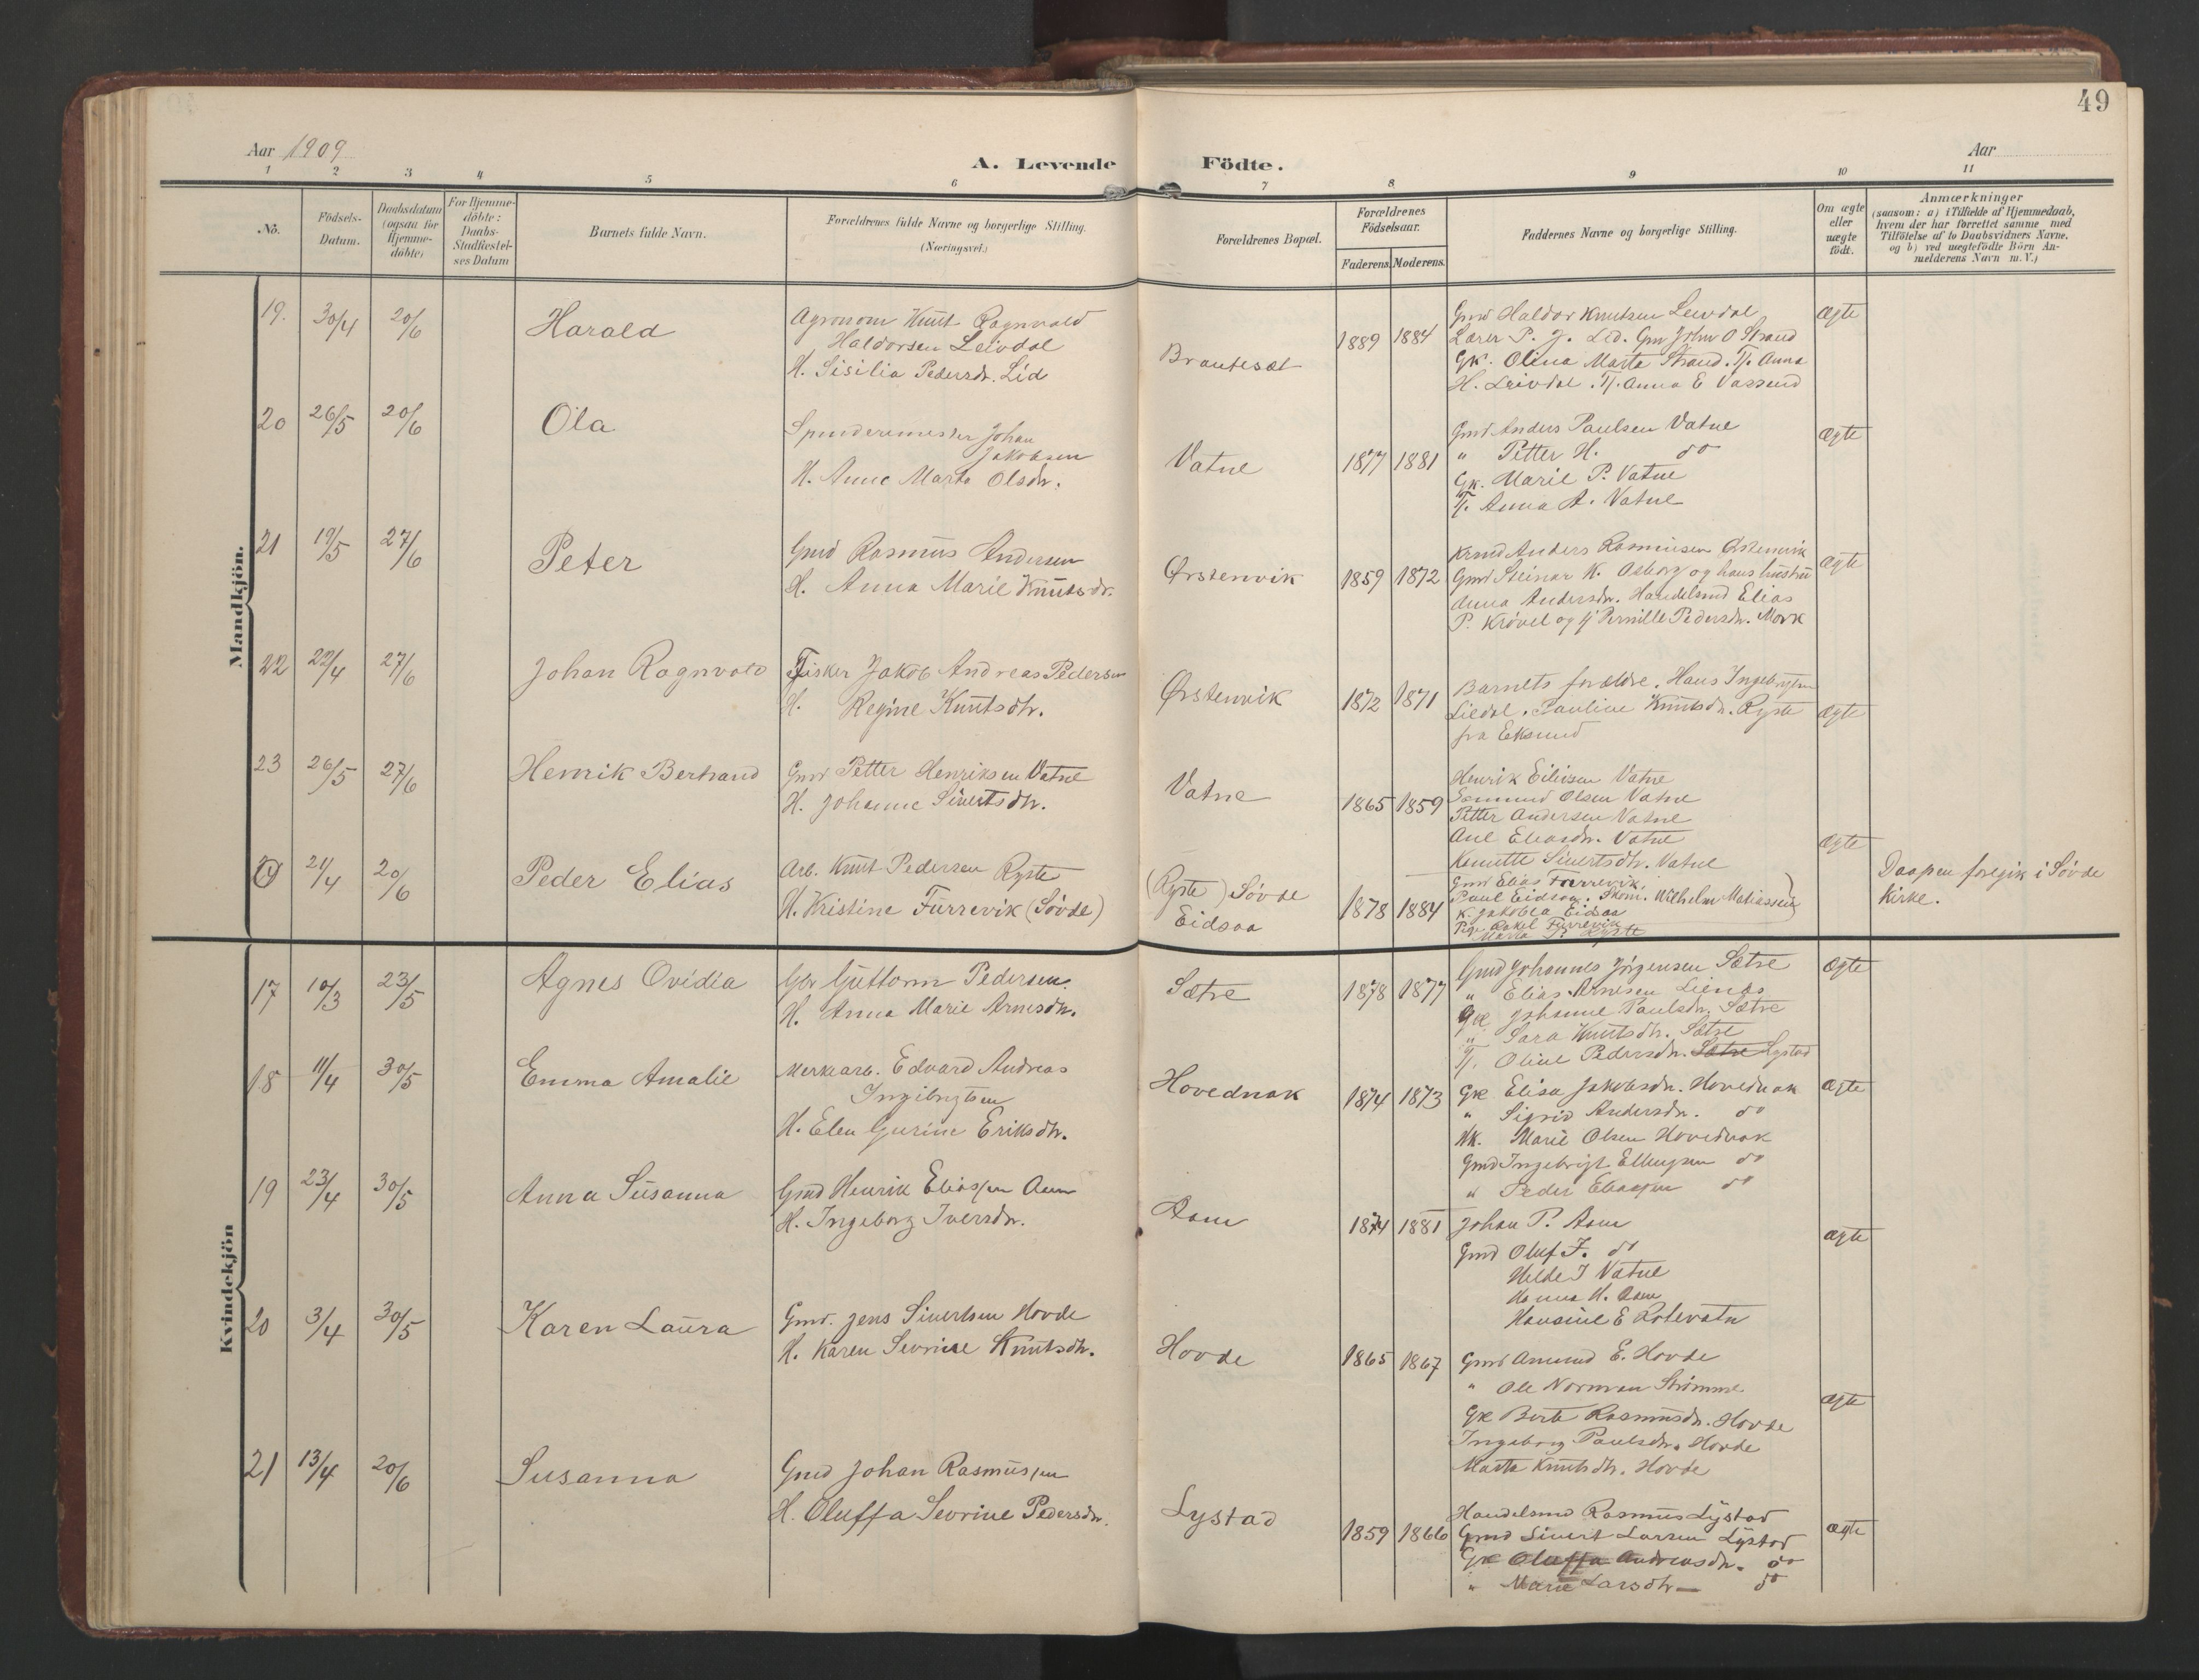 49
Aar 1909
A. Levende Födte.
Aar
1 2 3 4 5 6 7 8 9 10 11
No.
Födsels-Datum.
Daabsdatum (ogsaa for Hjemme-döbte)
For Hjemme-döbte: Daabs-Stadfæstel-ses Datum
Barnets fulde Navn.
Forældrenes fulde Navne og borgerlige Stilling. (Næringsvei.)
Forældrenes Bopæl.
Forældrenes Födselsaar.
Faderens. Moderens.
Faddernes Navne og borgerlige Stilling.
Om ægte eller uægte födt.
Anmærkninger
(saasom: a) i Tilfælde af Hjemmedaab, hvem der har forrettet samme med Tilföielse af to Daabsvidners Navne, og b) ved uægtefödte Börn An-melderens Navn m. V.)
Mandkjön.
19. 30/4 20/6 Harald
Agronom Knut Ragnvald
Haldorsen Leivdal
H. Sisilia Pedersdr. Lid
Brautesæt
1889 1884
Gmd Haldor Knutsen Leivdal
Lærer P. J. Lid. Gm John O Strand
Gk. Olina Marta Strand. Pj. Anna
H. Leivdal. Pj. Anna E Vassend
Ægte
20 26/5 20/6 Ola
Spinderimester Johan
Jakobsen
H. Anne Marta Olsdr.
Vatne
1877 1881
Gmd Anders Paulsen Vatne
" Petter H. do
Gk. Marie P. Vatne
Pj. Anna A. Vatne
Ægte
21 19/5 27/6 Peter
Gmd Rasmus Andersen
H. Anna Marie Knutsdr.
Ørstenvik
1859 1872
Krmd Anders Rasmusen Ørstenvik
Gmd Steinar K. Aaberg og hans hustru
Anna Andersdr. Handelsmd Elias
P. Krøvel og Pj Pernille Pedersdr. Mork
Ægte
22 22/4 27/6 Johan Ragnvald
Fisker Jakob Andreas Pedersen
H. Regine Knutsdtr.
Ørstenvik
1872 1871
Barnets forældre. Hans Ingebrigtsen
Liedal. Pauline Knutsdr. Ryste
fra Eksund
Ægte
23 26/5 27/6 Henrik Bertrand
Gmd Petter Henriksen Vatne
H. Johanne Sivertsdtr.
Vatne
1865 1859
Henrik Eilivsen Vatne
Edmund Olsen Vatne
Petter Andersen Vatne
Ane Eliasdr. Vatne
Kanutte Sivertsdtr. Vatne
Ægte
24 21/4 20/6 Peder Elias
Arb. Knut Pedersen Ryste
H. Kristine Furrevik (Søvde)
(Ryste) Søvde
Eidsaa
1878 1884
Gmd Elias Furrevik.
Paul Eidsaa. Skom. Wilhelm Matiassen
K. Jakobia Eidsaa
Pige Rakel Furrevik
Marta P. Ryste
Daapen foregik i Søvde
Kirke.
Kvindekjön
17 10/3 23/5 Agnes Ovidia
Gbr Guttorm Pedersen
H. Anna Marie Arnesdr.
Sætre
1878 1877
Gmd Johannes Jørgensen Sætre
" Elias Arnesen Lienæs
Gk Johanne Paulsdr. Sætre
" Sara Knutsdtr. Sætre
Pj. Oline Pedersdr. Sætre Lystad
Ægte
18 11/4 30/5 Emma Amalie
Merkearb. Edvard Andreas
Ingebrigtsen
H. Elen Gurine Eriksdtr.
Hovednak
1874 1873
Gk Elisa Jakobsdr. Hovednak
" Sigrid Andersdr. do
Hk. Marie Olsen Hovednak
Gmd Ingebrigt Ellingsen do
" Peder Eliassen do
Ægte
19 23/4 30/5 Anna Susanna
Gmd Henrik Eliassen Aam
H. Ingeborg Iversdr.
Aam
1874 1881
Johan P. Aam
Gmd Oluf J. do
Hilde J Vatne
Hanna H. Aam
Hansine E Rotevatn
Ægte
20 3/4 30/5 Karen Laura
Gmd. Jens Sivertsen Hovde
H. Karen Sevrine Knutsdtr.
Hovde
1865 1867
Gmd Amund E. Hovde
" Ole Norman Strømme
Gk Berte Rasmusdr. Hovde
Ingeborg Paulsdr. Hovde
Marta Knutsdtr. Hovde
Ægte
21 13/4 20/6 Susanna
Gmd Johan Rasmussen
H. Oluffa Sevrine Pedersdr.
Lystad
1859 1866
Handelsmd Rasmus Lystad
Gmd Sivert Larsen Lystad
Gk Oluffa Andreasdr. do
" Marie Larsdtr do
Ægte